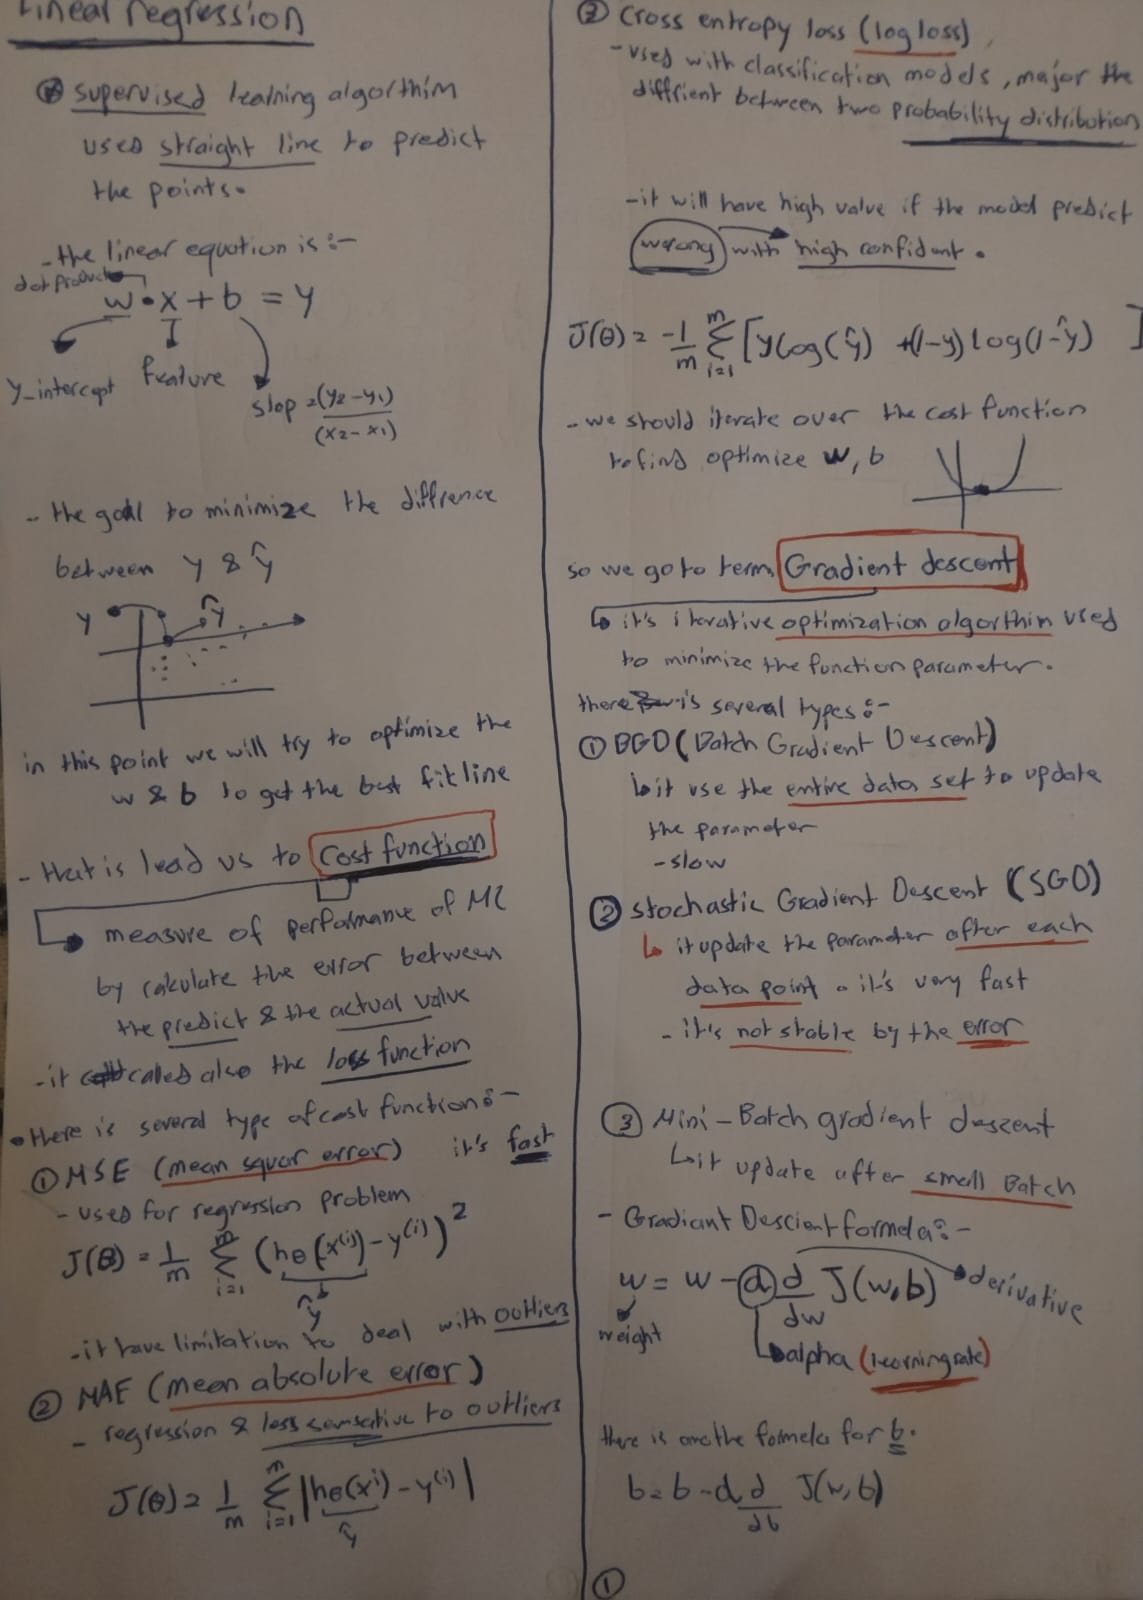 Linear regression
supervised learning algorthim
uses straight line to predict
the points.
- the linear equation is :-
dot product
w • x + b = y
y_intercept
feature
slop = (y2 - y1)
(x2 - x1)
- the goal to minimize the diffrence
between y & ŷ
y
ŷ
in this point we will try to optimize the
w & b to get the best fit line
- that is lead us to Cost function
measure of performance of ML
by calculate the error between
the predict & the actual value
- it called also the loss function
• there is several type of cost function :-
① MSE (mean squar error) it's fast
- used for regression problem
J(θ) = 1/m Σ (hθ(x⁽ⁱ⁾) - y⁽ⁱ⁾)²
m
i=1
ŷ
- it have limitation to deal with outliers
② MAE (mean absolute error)
- regression & less sensative to outliers
J(θ) = 1/m Σ |hθ(xⁱ) - y⁽ⁱ⁾|
m
i=1
ŷ
③ cross entropy loss (log loss)
- used with classification models, major the
diffrient between two probability distribution
- it will have high value if the model predict
wrong with high confident.
J(θ) = -1/m Σ [y log(ŷ) + (1-y) log(1-ŷ) ]
m
i=1
- we should iterate over the cost function
to find optimize w, b
so we go to term Gradient descent
it's iterative optimization algorthim used
to minimize the function parameter.
there is several types :-
① BGD (Batch Gradient Descent)
it use the entire data set to update
the parameter
- slow
② stochastic Gradient Descent (SGD)
it update the parameter after each
data point . it's very fast
- it's not stable by the error
③ Mini-Batch gradient descent
it update after small Batch
- Gradiant Descient formela :-
w = w - α d/dw J(w, b)
derivative
weight
alpha (learning rate)
there is anothe formela for b.
b = b - α d/db J(w, b)
①